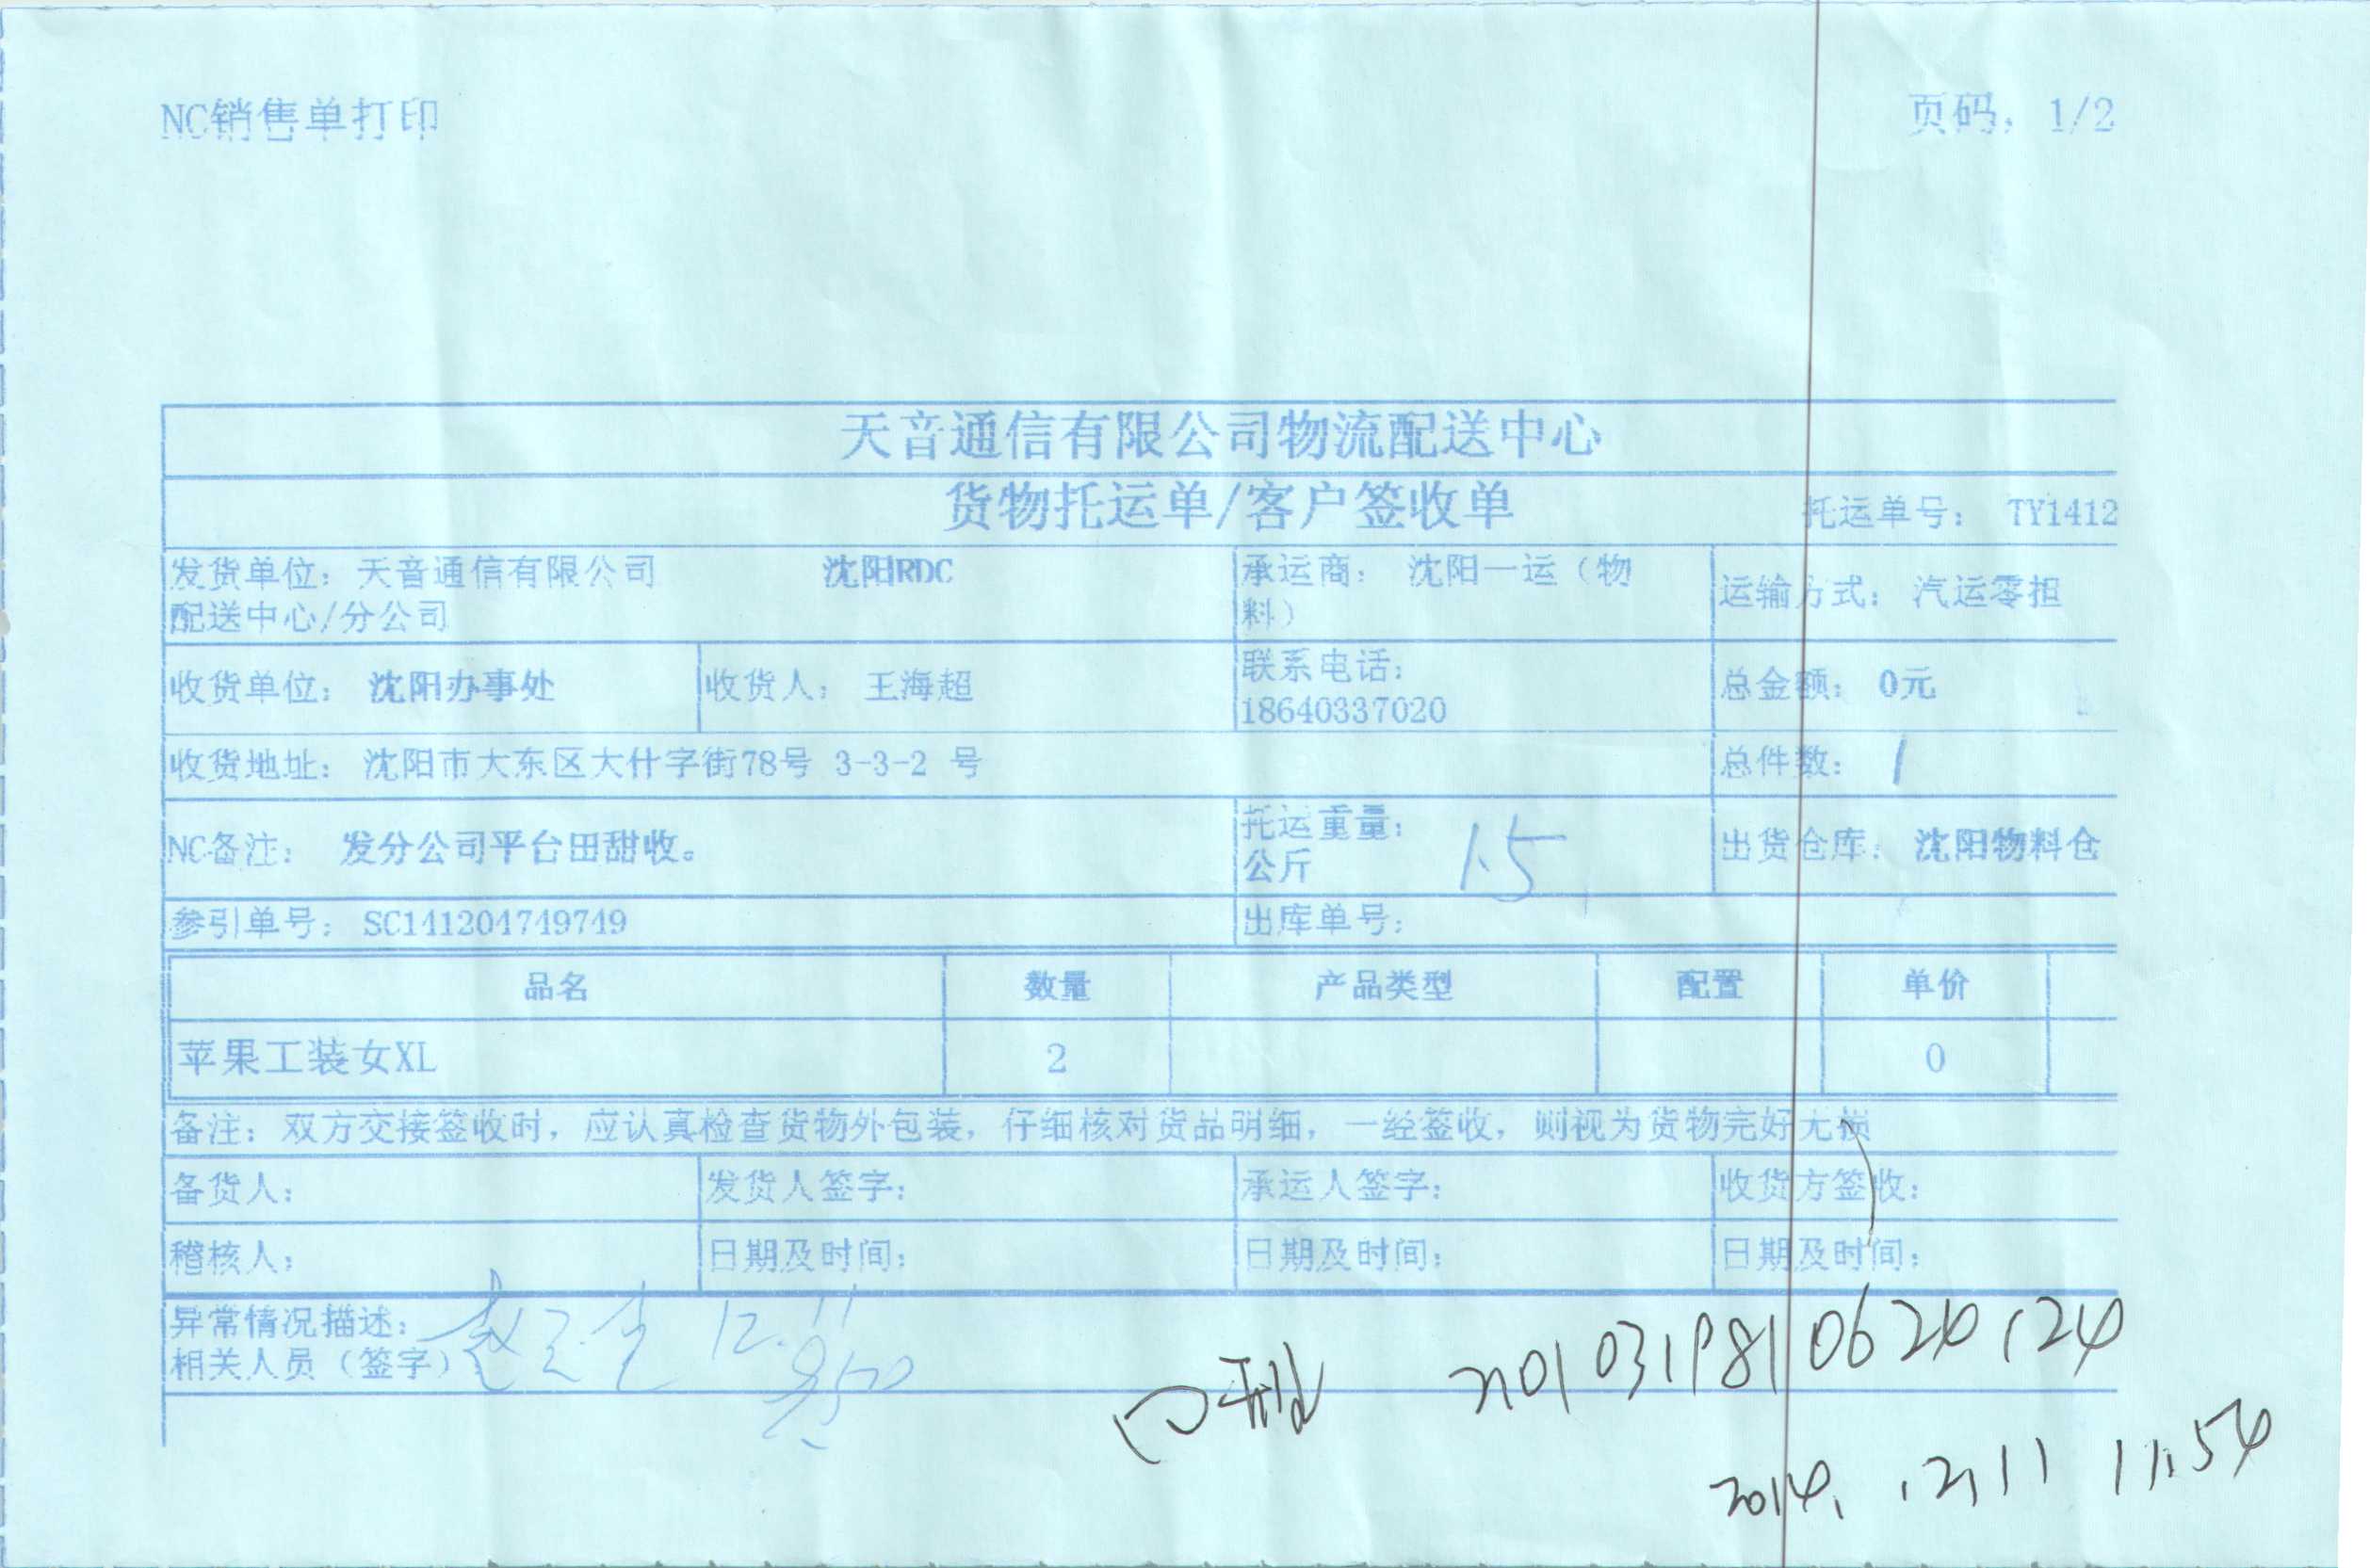 NC销售单打印 页码: 1/2
天音通信有限公司物流配送中心
货物托运单/客户签收单 托运单号: TY1412
发货单位: 天音通信有限公司 沈阳RDC 承运商: 沈阳一运(物 运输方式: 汽运零担
配送中心/分公司 料)
收货单位: 沈阳办事处 收货人: 王海超 联系电话: 总金额: 0元
18640337020
收货地址: 沈阳市大东区大什字街78号 3-3-2 号 总件数: 1
NC备注: 发分公司平台田甜收。 托运重量: 1.5 出货仓库: 沈阳物料仓
公斤
参引单号: SC141204749749 出库单号:
品名 数量 产品类型 配置 单价
苹果工装女XL 2 0
备注: 双方交接签收时, 应认真检查货物外包装, 仔细核对货品明细, 一经签收, 则视为货物完好无损
备货人: 发货人签字: 承运人签字: 收货方签收:
稽核人: 日期及时间: 日期及时间: 日期及时间:
异常情况描述: 12.11
相关人员(签字) 8:50
田甜
2014.12.11 11:54